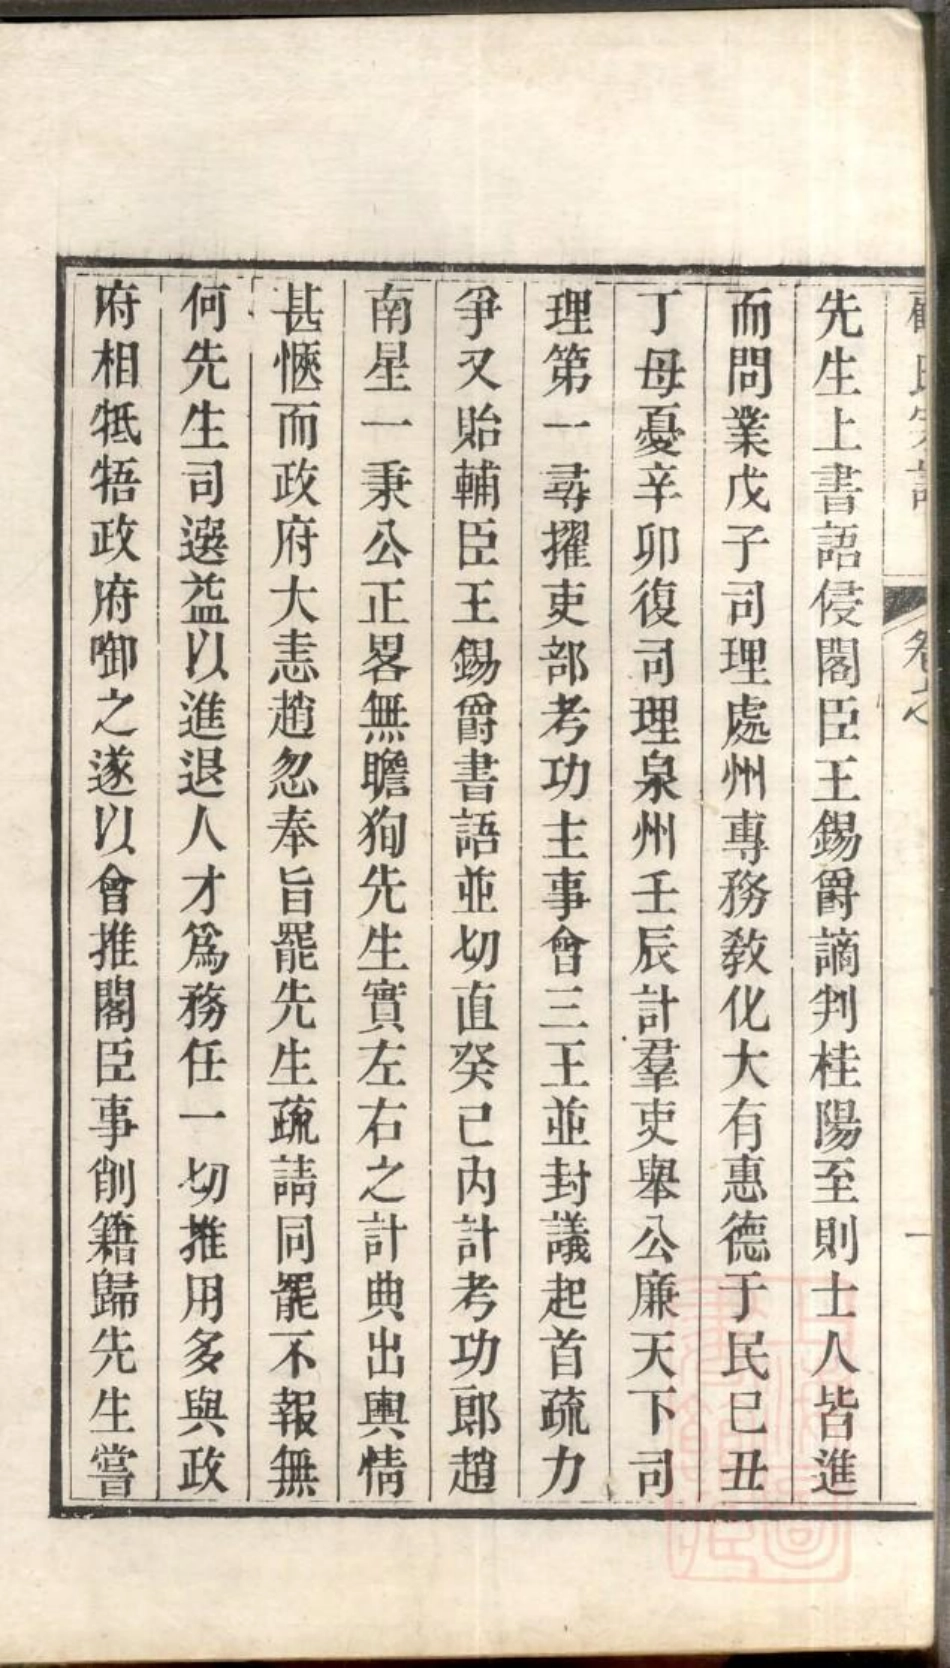 先生上書語侵閣臣王錫爵謫判桂陽至則士人皆進
而問業戊子司理處州專務敎化大有惠德于民巳丑
丁母憂辛卯復司理泉州壬辰計羣吏舉公廉天下司
理第一尋擢吏部考功主事會三王並封議起首疏力
爭又貽輔臣王錫爵書語並切直癸巳內計考功郎趙
南星一秉公正畧無瞻狥先生實左右之計典出輿情
甚愜而政府大恚趙忽奉旨罷先生疏請同罷不報無
何先生司選益以進退人才爲務任一切推用多與政
府相牴牾政府啣之遂以會推閣臣事削籍歸先生嘗